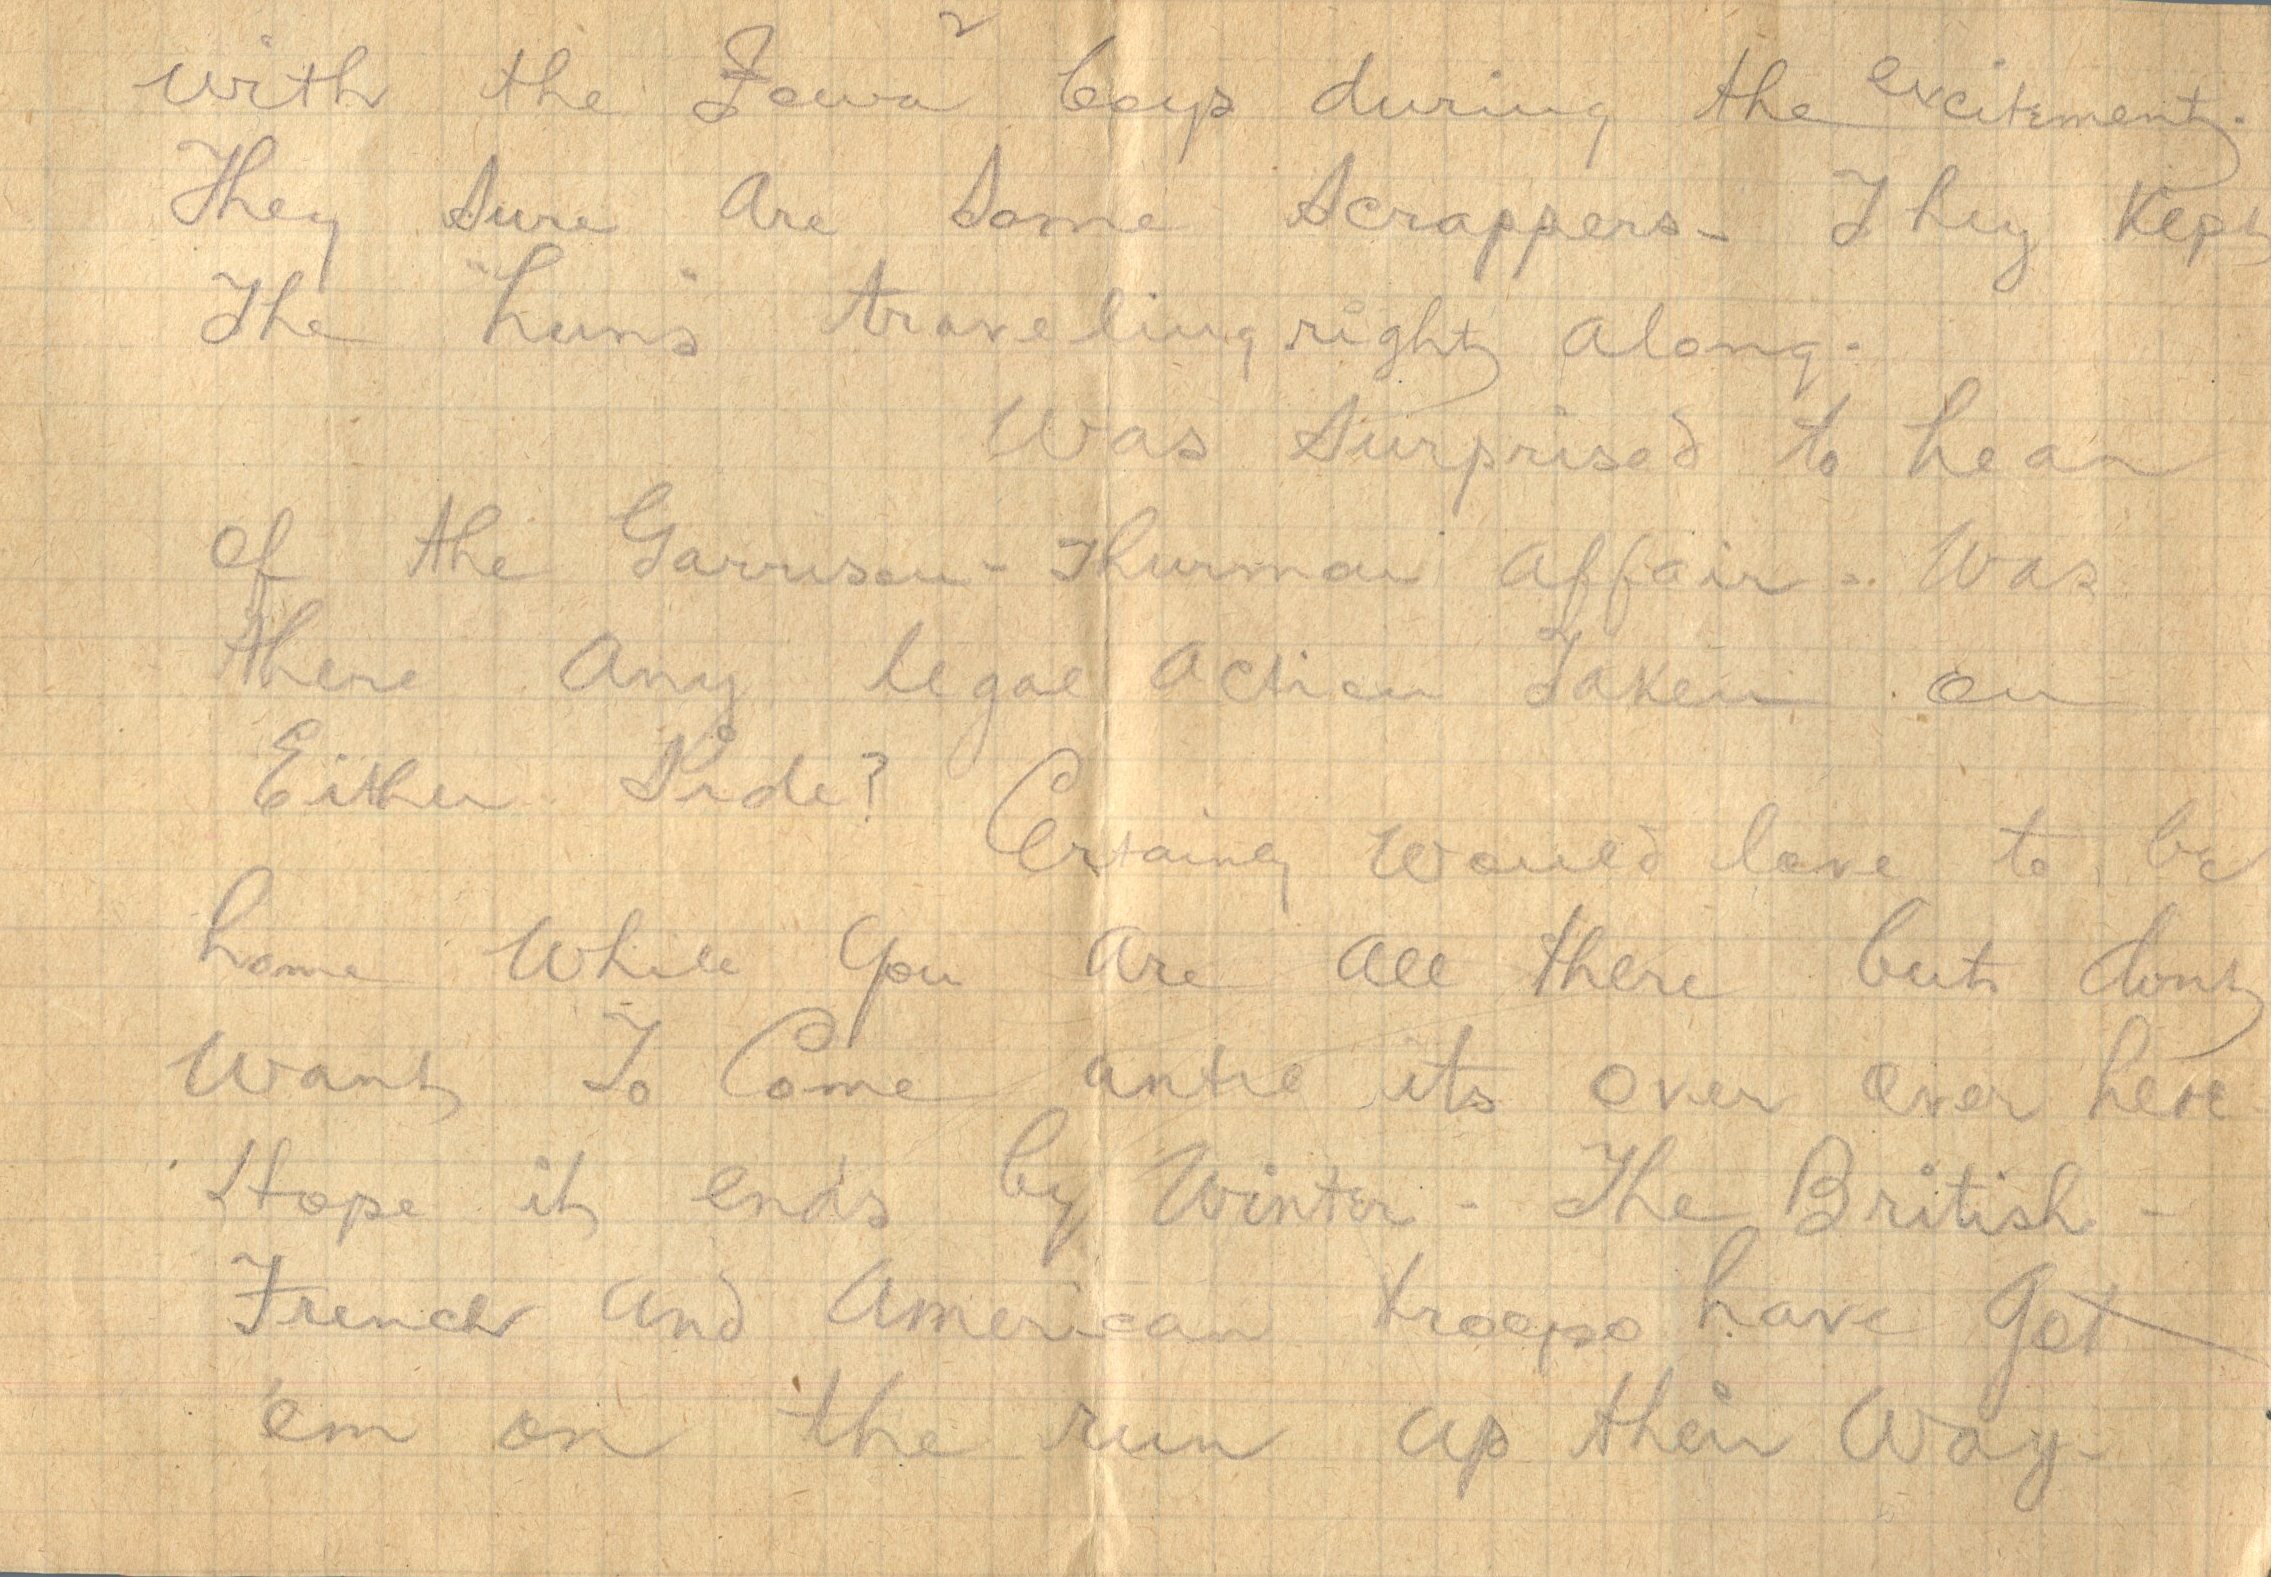 2
with the Iowa boys during the excitement.
They sure are some scrappers - They kept
The "huns" traveling right along.
Was surprised to hear
of the Garrison - Thurman affair. Was
there any legal action Taken on
Either Side?
Certainly would love to be
home while you are all there but dont
want To Come until its over over here
Hope it ends by Winter - The British -
French and American troops have got
'em on the run up their way -